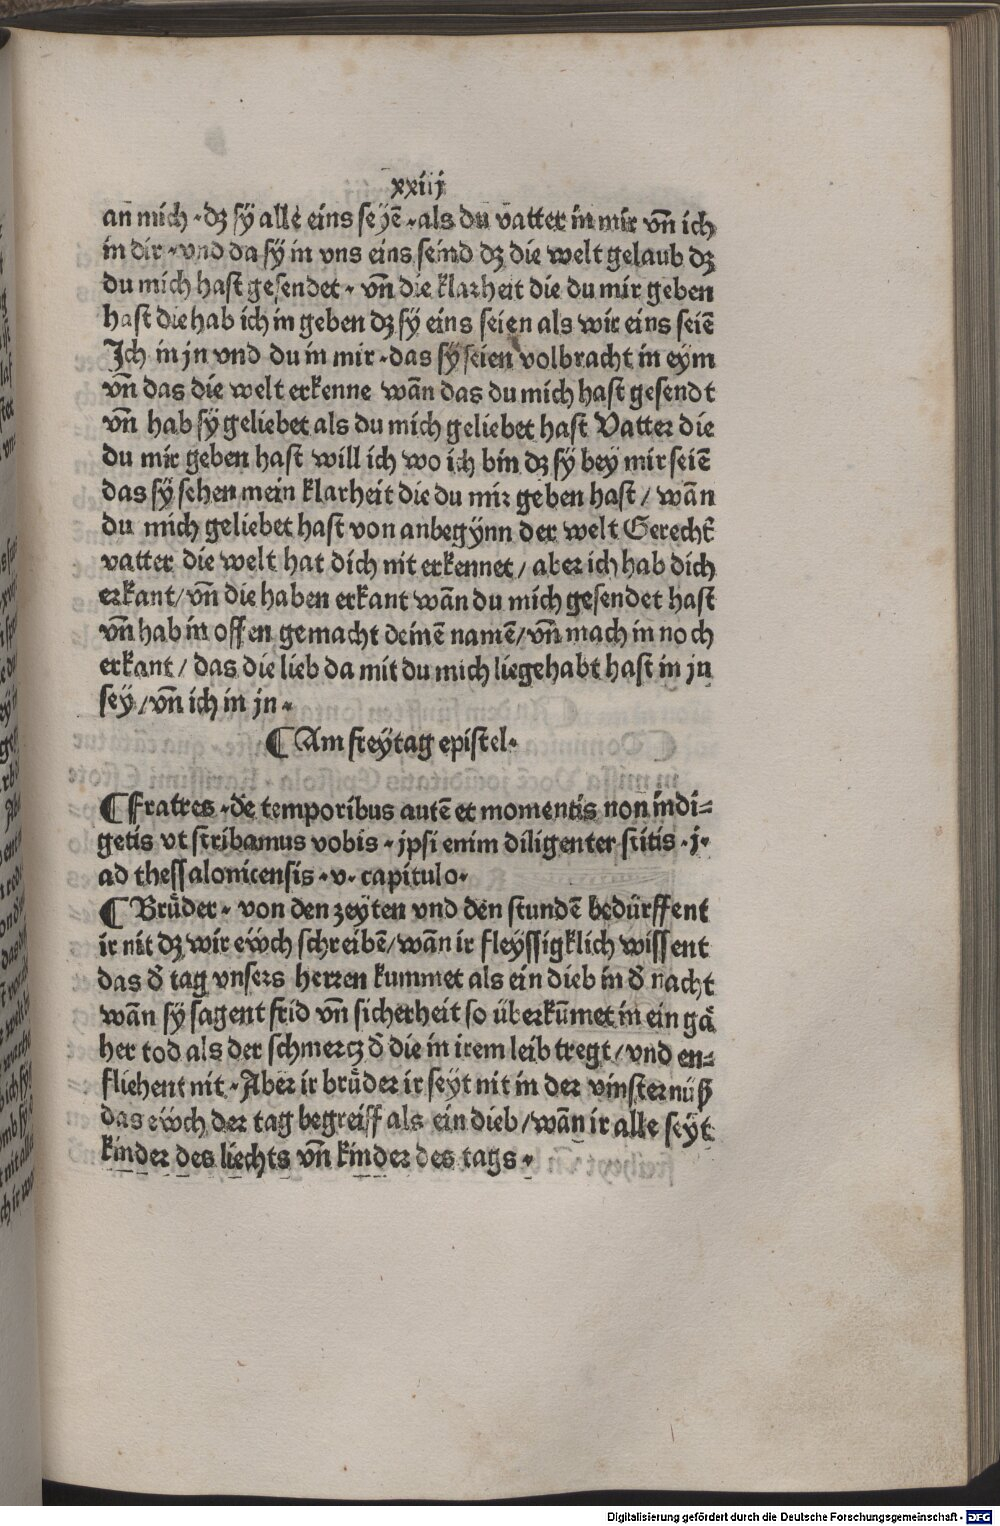 xxiij
an mich · dʒ sÿ alle eins seyē · als du vatter in mir vn̄ ich
in dir · vnd da sÿ in vns eins seind dʒ die welt gelaub dʒ
du mich hast gesendet · vn̄ die klarheit die du mir geben
hast die hab ich in geben dʒ sÿ eins seien als wir eins seiē
Ich in jn vnd du in mir · das sÿ seien volbracht in eym
vn̄ das die welt erkenne wān das du mich hast gesendt
vn̄ hab sÿ geliebet als du mich geliebet hast Vatter die
du mir geben hast will ich wo ich bin dʒ sÿ bey mir seiē
das sÿ sehen mein klarheit die du mir geben hast / wān
du mich geliebet hast von anbegÿnn der welt Gerechť
vatter die welt hat dich nit erkennet / aber ich hab dich
erkant / vn̄ die haben erkant wān du mich gesendet hast
vn̄ hab in offen gemacht deinē namē / vn̄ mach in noch
erkant / das die lieb da mit du mich liegehabt hast in ju
sey / vn̄ ich in jn ·
¶ Am freÿtag epistel ·
¶ Fratres · de temporibus autē et momentis non indi⸗
getis vt scribamus vobis · jpsi enim diligenter scitis · j ·
ad thessalonicensis · v · capitulo ·
¶ Brůder · von den zeyten vnd den stundē bedürffent
ir nit dʒ wir eẅch schreibē / wān ir fleÿssigklich wissent
das ď tag vnsers herren kummet als ein dieb in ď nacht
wān sÿ sagent frid vn̄ sicherheit so überkūmet in ein gä
her tod als der schmercz ď die in irem leib tregt / vnd en⸗
fliehent nit · Aber ir brůder ir seyt nit in der vinsternüß
das eẅch der tag begreiff als ein dieb / wān ir alle seyt
kinder des liechts vn̄ kinder des tags ·
Digitalisierung gefördert durch die Deutsche Forschungsgemeinschaft - DFG